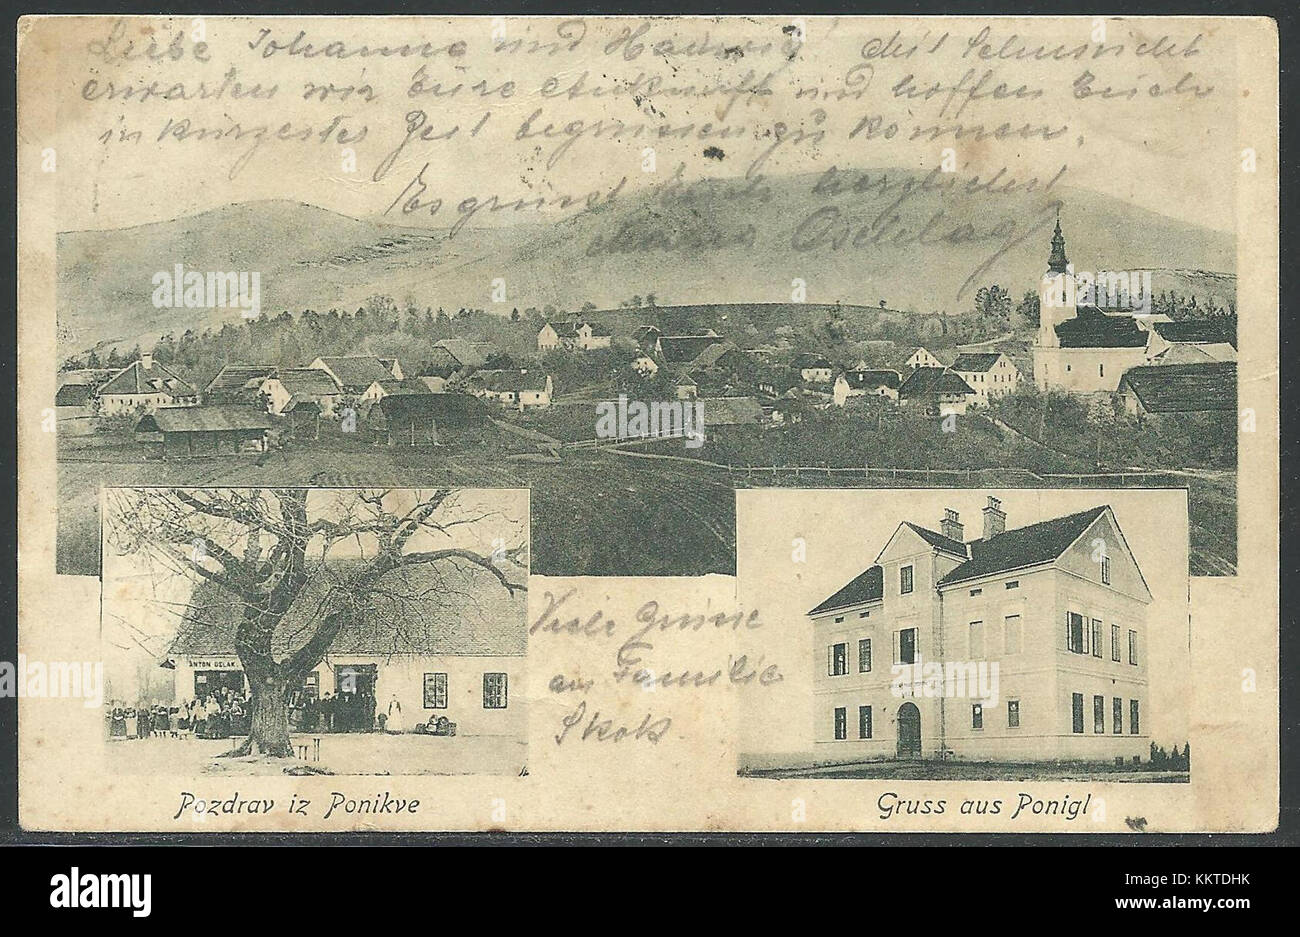 Liebe Johanna und Hadwig! Mit Sehnsucht
erwarten wir Eure Ankunft und hoffen Euch
in kürzester Zeit begrüssen zu können.
Es grüsst Euch herzlichst
Oschlag
ANTON OSLAK
Viele Grüsse
aus Familie
Skok
Pozdrav iz Ponikve
Gruss aus Ponigl
alamy
a
alamy
Image ID: KKTDHK
www.alamy.com